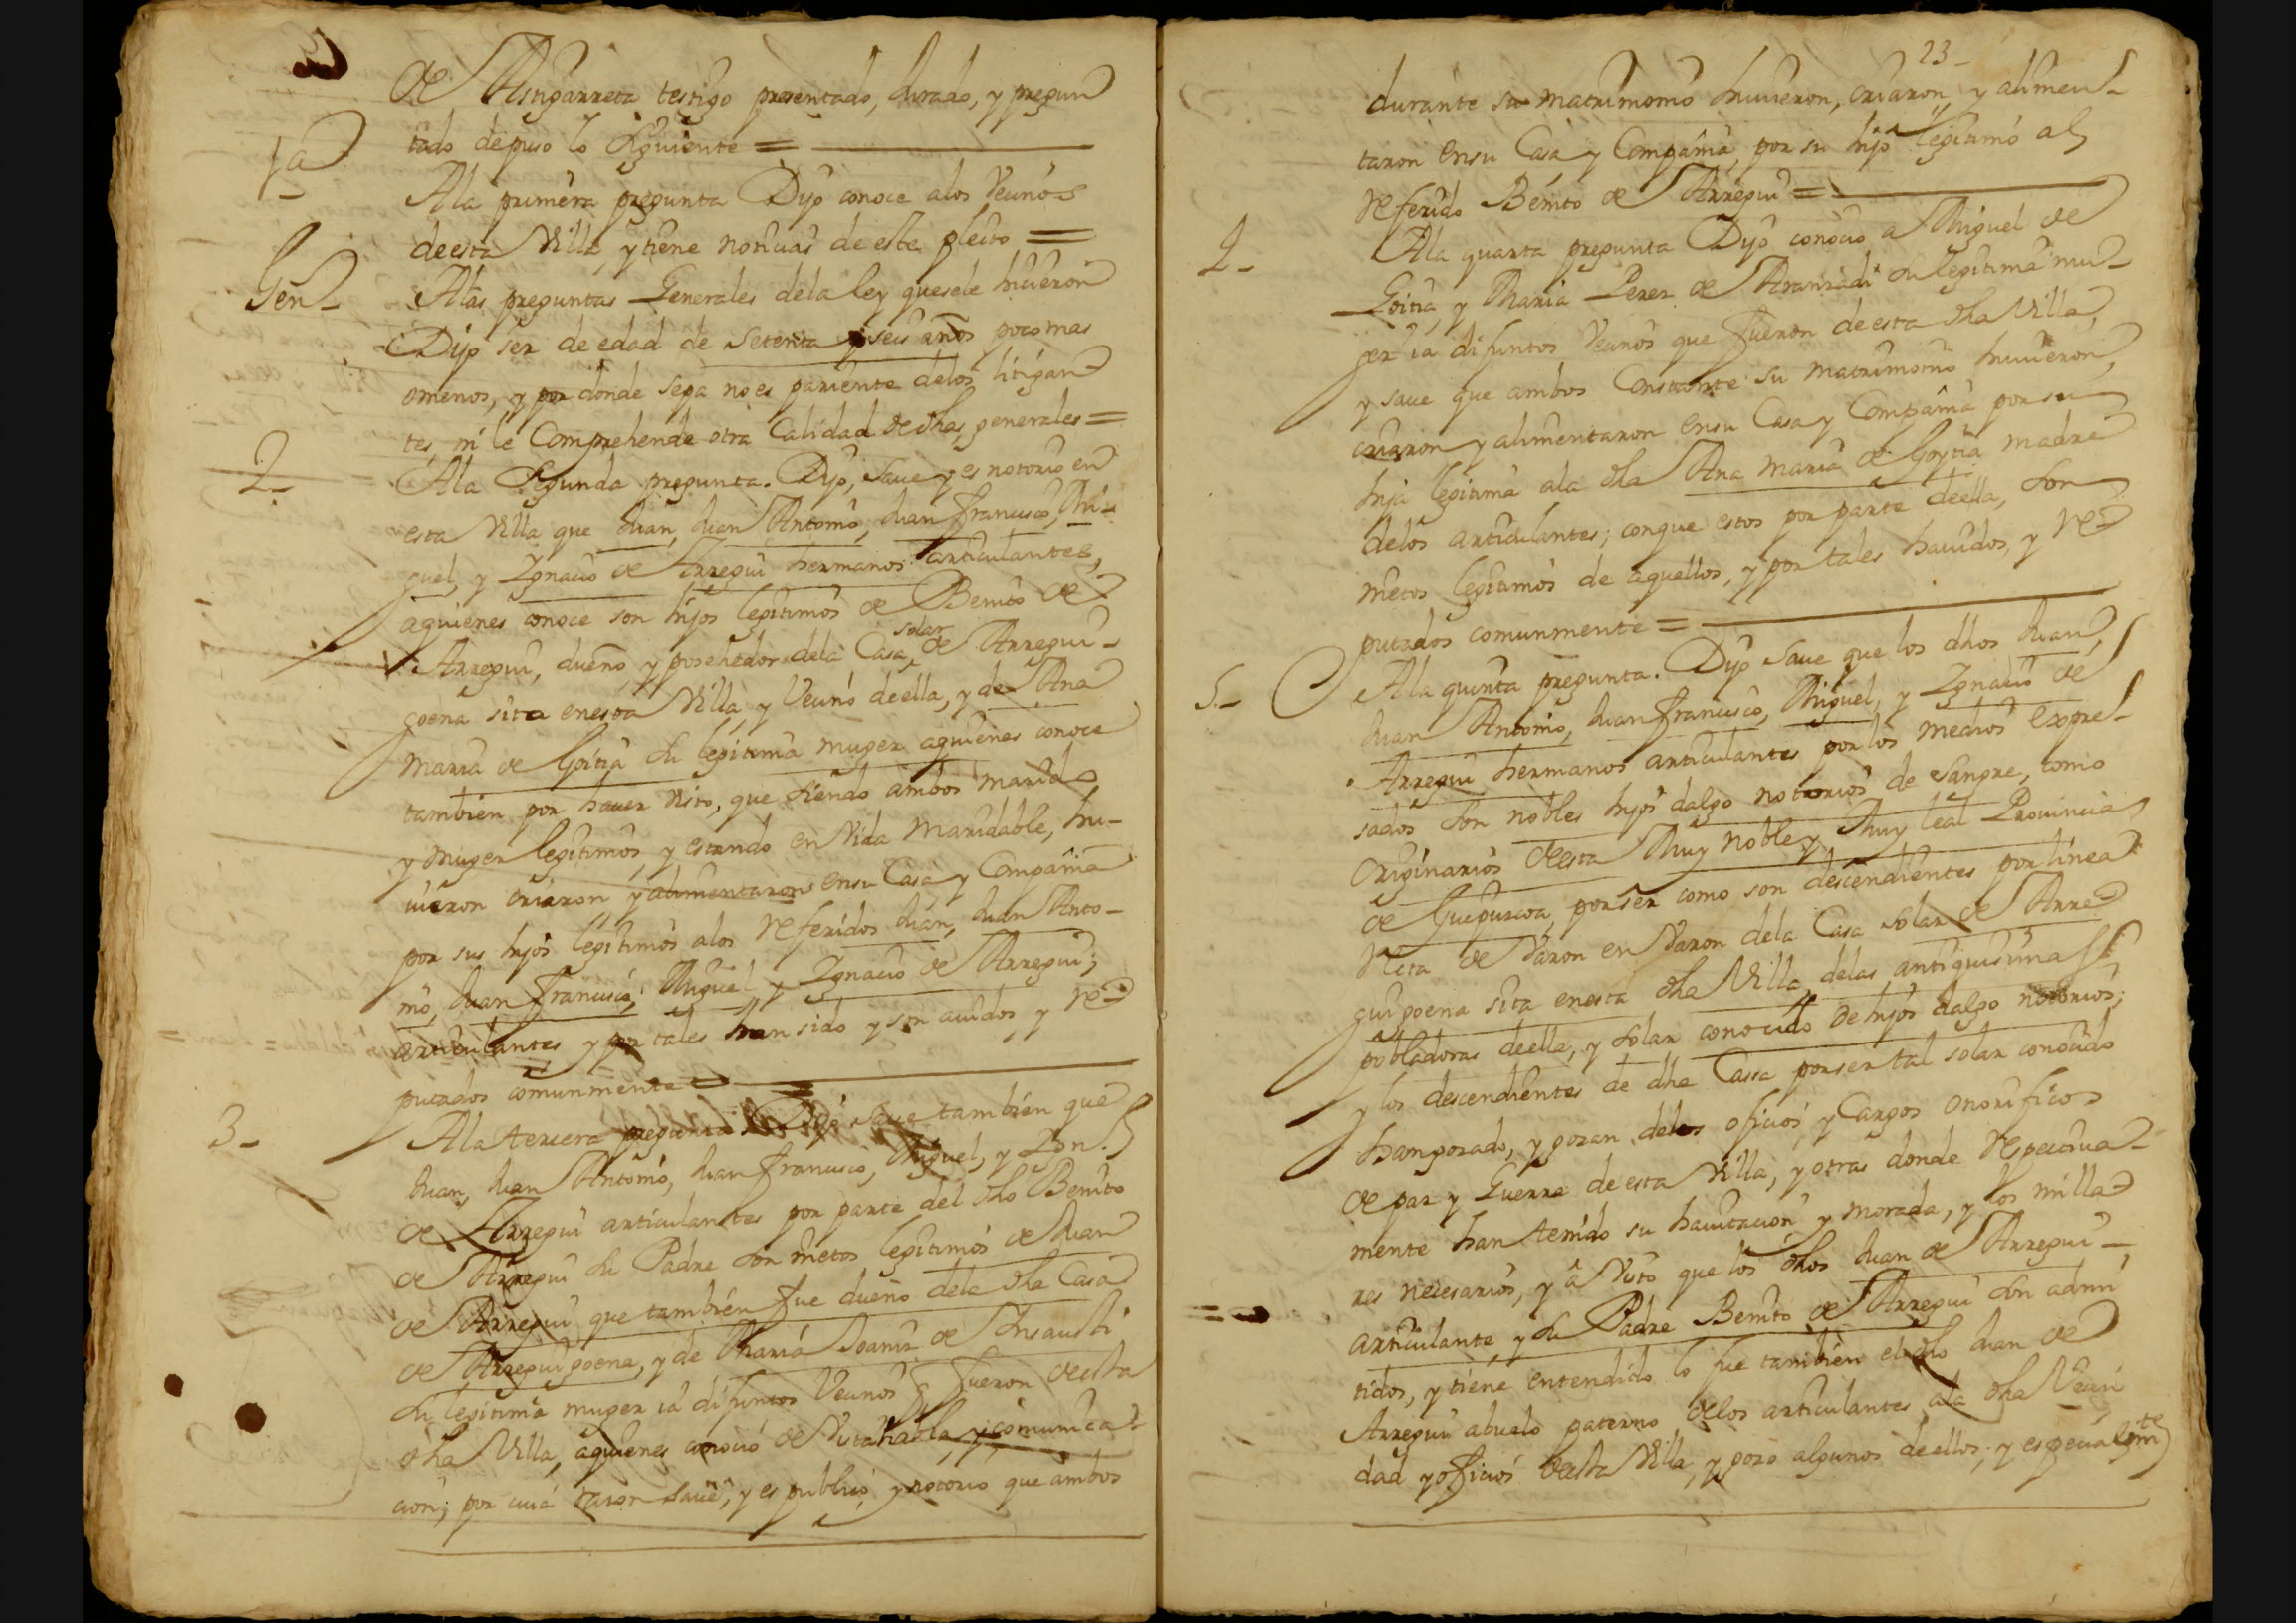 de Astigarreta testigo presentado, Jurado, y pregun
tado depuso lo siguiente =
1a
Ala primera pregunta Dijo conoce alos Vecinos
deesta Villa, y tiene noticias de este pleito =
Gen-
Alas preguntas Generales dela ley quesele hicieron
Dijo ser de edad de setenta y seis años poco mas
omenos, y por donde sepa no es pariente delos litigan
tes, ni le Comprehende otra Calidad de dhas generales =
2-
Ala Segunda pregunta. Dijo, Save y es notorio en
esta Villa que Juan, Juan Antonio, Juan Francisco, Mi-
guel, y Ygnacio de Arregui hermanos articulantes,
aquienes conoce son hijos legitimos de Benito de
Arregui, dueño y posehedor dela Casa solar de Arregui-
goena sita enesta Villa, y Vecino deella, y de Ana
Maria de Goitia su legitima muger aquienes conoce
tambien por haver visto, que siendo ambos marido
y muger legitimos, y estando en Vida Maridable, hu-
vieron criaron y alimentaron ensu Casa y Compañia
por sus hijos legitimos alos referidos Juan, Juan Anto-
nio, Juan Francisco, Miguel y Ygnacio de Arregui;
articulantes y por tales han sido y son avidos, y re-
putados comunmente =
3-
Ala tercera pregunta Dijo save tambien que
Juan, Juan Antonio, Juan Francisco, Miguel, y Ygn.
de Arregui articulantes por parte del dho Benito
de Arregui su Padre son nietos legitimos de Juan
de Arregui que tambien fue dueño dela dha Casa
de Arreguigoena, y de Maria Joaniz de Insausti
su legitima muger ia difuntos Vecinos q fueron deesta
dha Villa, aquienes conoció de Vista habla, y comunica-
cion; por cuia razon save, y es publico, y notorio que ambos
23-
durante su matrimonio huvieron, criaron, y alimen-
taron ensu Casa y Compañia, por su hijo legitimo al
referido Benito de Arregui =
4-
Ala quarta pregunta Dijo conocio a Miguel de
Goitia, y Maria Perez de Aranzadi su legitima mu-
ger ia difuntos Vecinos que fueron deesta dha Villa,
y save que ambos Constante su matrimonio huvieron,
criaron y alimentaron ensu Casa y Compañia por su
hija legitima ala dha Ana Maria de Goytia madre
delos articulantes; conque estos por parte deella, son
nietos legitimos de aquellos, y por tales havidos, y re-
putados comunmente =
5-
Ala quinta pregunta. Dijo save que los dhos Juan,
Juan Antonio, Juan Francisco, Miguel, y Ygnacio de
Arregui hermanos articulantes por los medios expre-
sados son nobles hijos dalgo notorios de sangre, como
Originarios deesta Muy noble y Muy leal Provincia
de Guipuzcoa, por ser como son descendientes por linea
recta de Varon en Varon dela Casa solar de Arre-
guigoena sita enesta dha Villa, delas antiquisimas
pobladoras deella, y solar conocido de hijos dalgo notorios;
y los descendientes de dha Cassa por ser tal solar conocido
han gozado, y gozan delos oficios, y Cargos onorificos
de paz y Guerra de esta Villa, y otras donde respectiva-
mente han tenido su havitacion y morada, y los milla-
res necesarios, y â visto que los dhos Juan de Arregui-,
articulante, y su Padre Benito de Arregui son admi
tidos, y tiene entendido lo fue tambien el dho Juan de
Arregui abuelo paterno delos articulantes ala dha Vecin
dad y oficios deesta Villa, y gozo algunos deellos; y especialmte